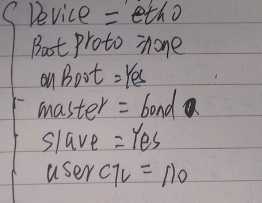 Device = eth0
Boot proto = none
on Boot = Yes
master = bond0
slave = Yes
userctl = no